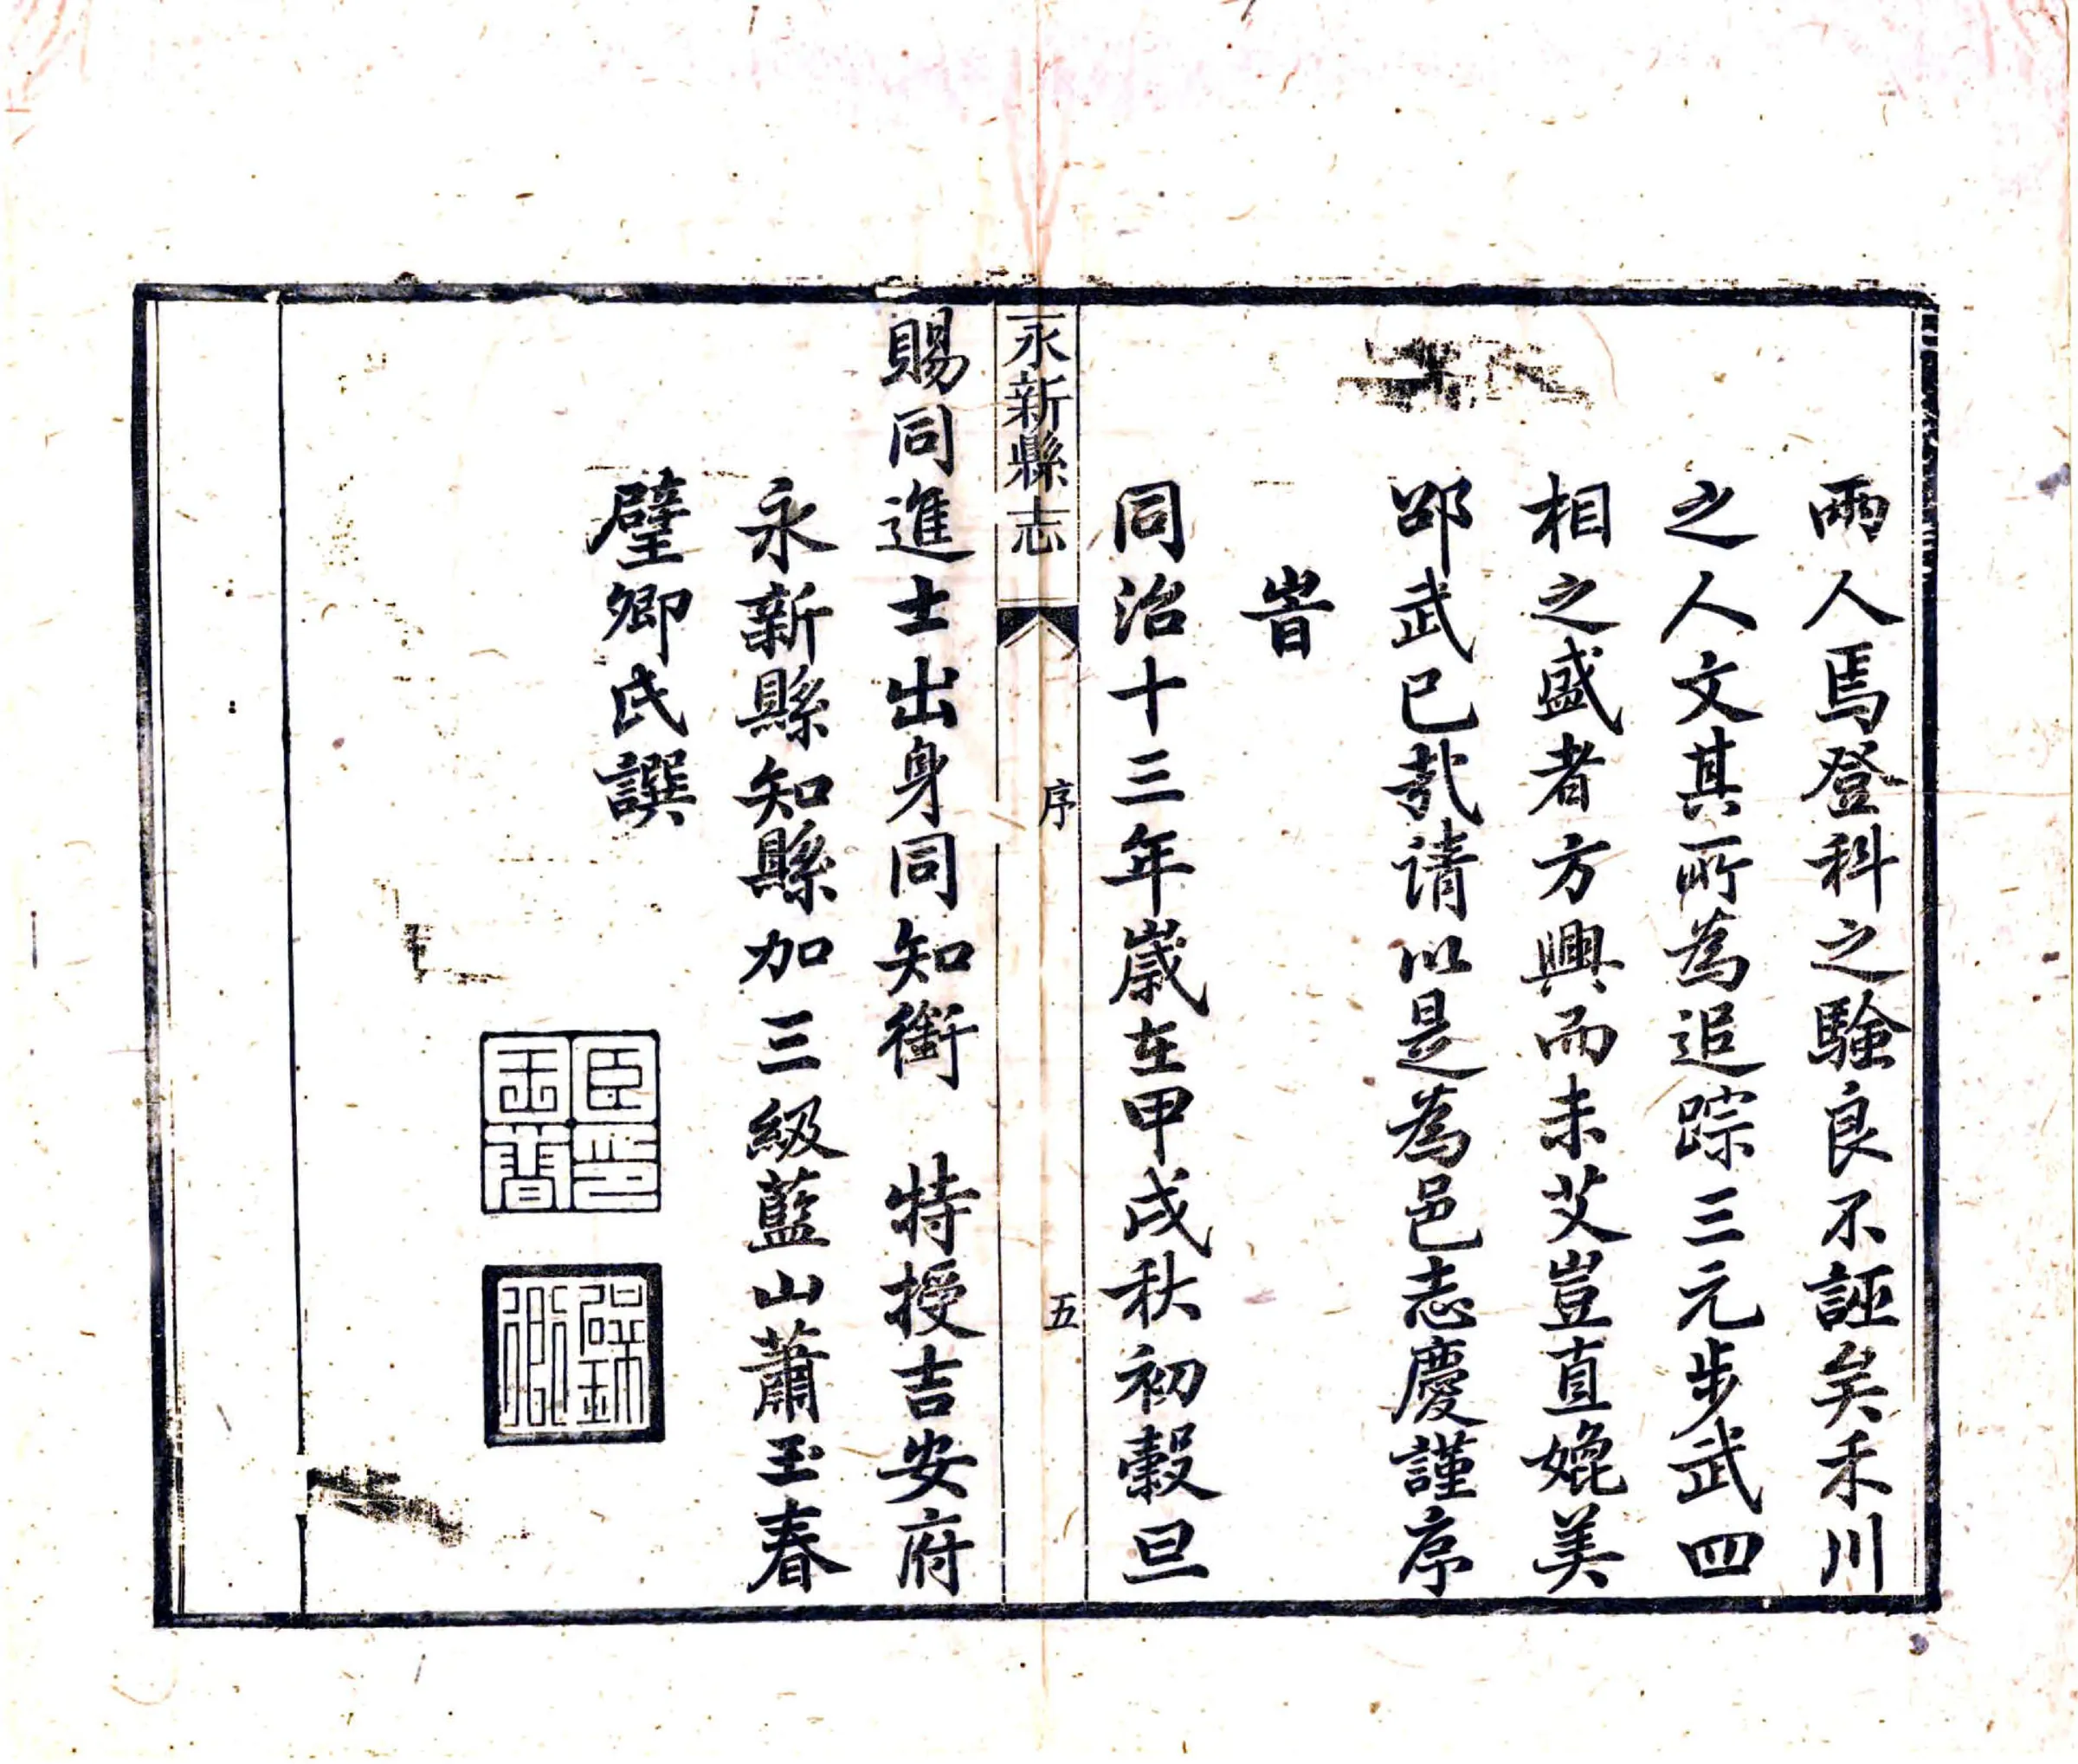 兩人焉登科之驗良不誣矣禾川
之人文其所為追踪三元步武四
相之盛者方興而未艾豈直媲美
邵武已㢤請以是為邑志慶謹序
旹
同治十三年嵗在甲戌秋初穀旦
永新縣志
序
五
賜同進士出身同知銜 特授吉安府
永新縣知縣加三級藍山蕭玉春
璧卿氏譔
臣印玉春
璧卿